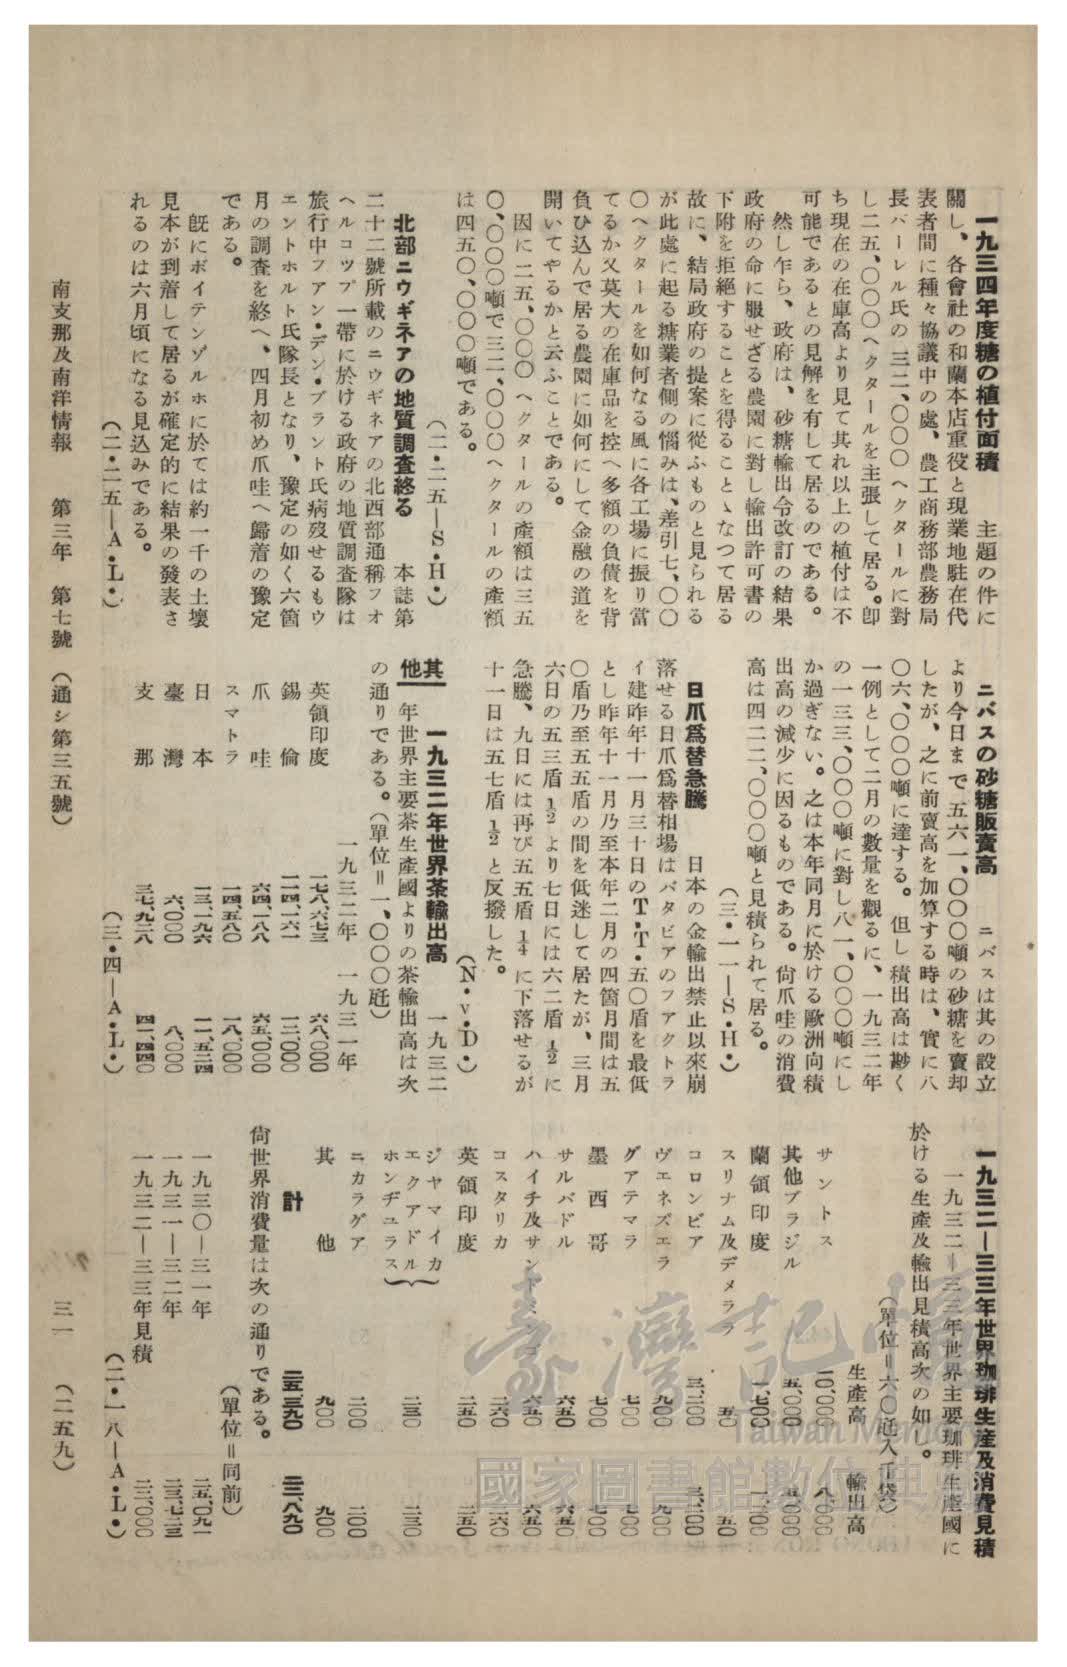 一九三四年度糖の植付面積　主題の件に
關し、各會社の和蘭本店重役と現業地駐在代
表者間に種々協議中の處、農工商務部農務局
長バーレル氏の三二、〇〇〇ヘクタールに對
し二五、〇〇〇ヘクタールを主張して居る。卽
ち現在の在庫高より見て其れ以上の植付は不
可能であるとの見解を有して居るのである。
然し乍ら、政府は、砂糖輸出令改訂の結果
政府の命に服せざる農園に對し輸出許可書の
下附を拒絶することを得ることゝなつて居る
故に、結局政府の提案に從ふものと見られる
が此處に起る糖業者側の惱みは、差引七、〇〇
〇ヘクタールを如何なる風に各工場に振り當
てるか又莫大の在庫品を控へ多額の負債を背
負ひ込んで居る農園に如何にして金融の道を
開いてやるかと云ふことである。
因に二五、〇〇〇ヘクタールの產額は三五
〇、〇〇〇噸で三二、〇〇〇ヘクタールの產額
は四五〇、〇〇〇噸である。
（二・二五―S・H・）
北部ニウギネアの地質調査終る　本誌第
二十二號所載のニウギネアの北西部通稱フオ
ヘルコツプ一帶に於ける政府の地質調査隊は
旅行中フアン・デン・ブラント氏病歿せるもウ
エントホルト氏隊長となり、豫定の如く六箇
月の調査を終へ、四月初め爪哇へ歸着の豫定
である。
旣にボイテンゾルホに於ては約一千の土壤
見本が到着して居るが確定的に結果の發表さ
れるのは六月頃になる見込みである。
（二・二五―A・L・）
ニバスの砂糖販賣高　ニバスは其の設立
より今日まで五六一、〇〇〇噸の砂糖を賣却
したが、之に前賣高を加算する時は、實に八
〇六、〇〇〇噸に達する。但し積出高は尠く
一例として二月の數量を觀るに、一九三二年
の一三三、〇〇〇噸に對し八一、〇〇〇噸にし
か過ぎない。之は本年同月に於ける歐洲向積
出高の減少に因るものである。尙爪哇の消費
高は四二二、〇〇〇噸と見積られて居る。
（三・一一―S・H・）
日爪爲替急騰　日本の金輸出禁止以來崩
落せる日爪爲替相場はバタビアのフアクトラ
イ建昨年十一月三十日のT・T・五〇盾を最低
とし昨年十一月乃至本年二月の四箇月間は五
〇盾乃至五五盾の間を低迷して居たが、三月
六日の五三盾½より七日には六二盾½に
急騰、九日には再び五五盾¼に下落せるが
十一日は五七盾½と反撥した。
（N・v・D・）
其他
一九三二年世界茶輸出高　一九三二
年世界主要茶生產國よりの茶輸出高は次
の通りである。（單位＝一、〇〇〇瓩）
一九三二年　一九三一年
英領印度　一七八、六七三　一六八、〇〇〇
錫倫　一一四、一六一　一一一、〇〇〇
爪哇　六四、一八八　六五、〇〇〇
スマトラ　一四、五八〇　一八、〇〇〇
日本　一三、一九六　一一、五二四
臺灣　六、〇〇〇　八、〇〇〇
支那　三七、九二八　四二、四四〇
（三・四―A・L・）
一九三二―三三年世界珈琲生產及消費見積
一九三二―三三年世界主要珈琲生產國に
於ける生產及輸出見積高次の如し。
（單位＝六〇瓩入千袋）
生產高　輸出高
サントス
其他ブラジル　五、〇〇〇
蘭領印度　一、七〇〇
スリナム及デメララ　五〇　五〇
コロンビア　三、二〇〇　三、二〇〇
ヴエネズエラ　九〇〇　九〇〇
グアテマラ　七〇〇　七〇〇
墨西哥　七〇〇　七〇〇
サルバドル　六五〇　六五〇
ハイチ及サントドミンゴ　六五〇　六五〇
コスタリカ　二六〇　二六〇
英領印度　二五〇　二五〇
ジヤマイカ
エクアドル　二三〇　二三〇
ホンヂユラス
ニカラグア　二〇〇　二〇〇
其他　九〇〇　九〇〇
計　三五、三九〇　三二、八九〇
尙世界消費量は次の通りである。
（單位＝同前）
一九三〇―三一年　二五、〇九一
一九三一―三二年　二三、七二三
一九三二―三三年見積　二二、〇〇〇
（二・一八―A・L・）
南支那及南洋情報　第三年　第七號（通シ第三五號）　三一　（二五九）
臺灣記憶
Taiwan Memory
國家圖書館數位典藏